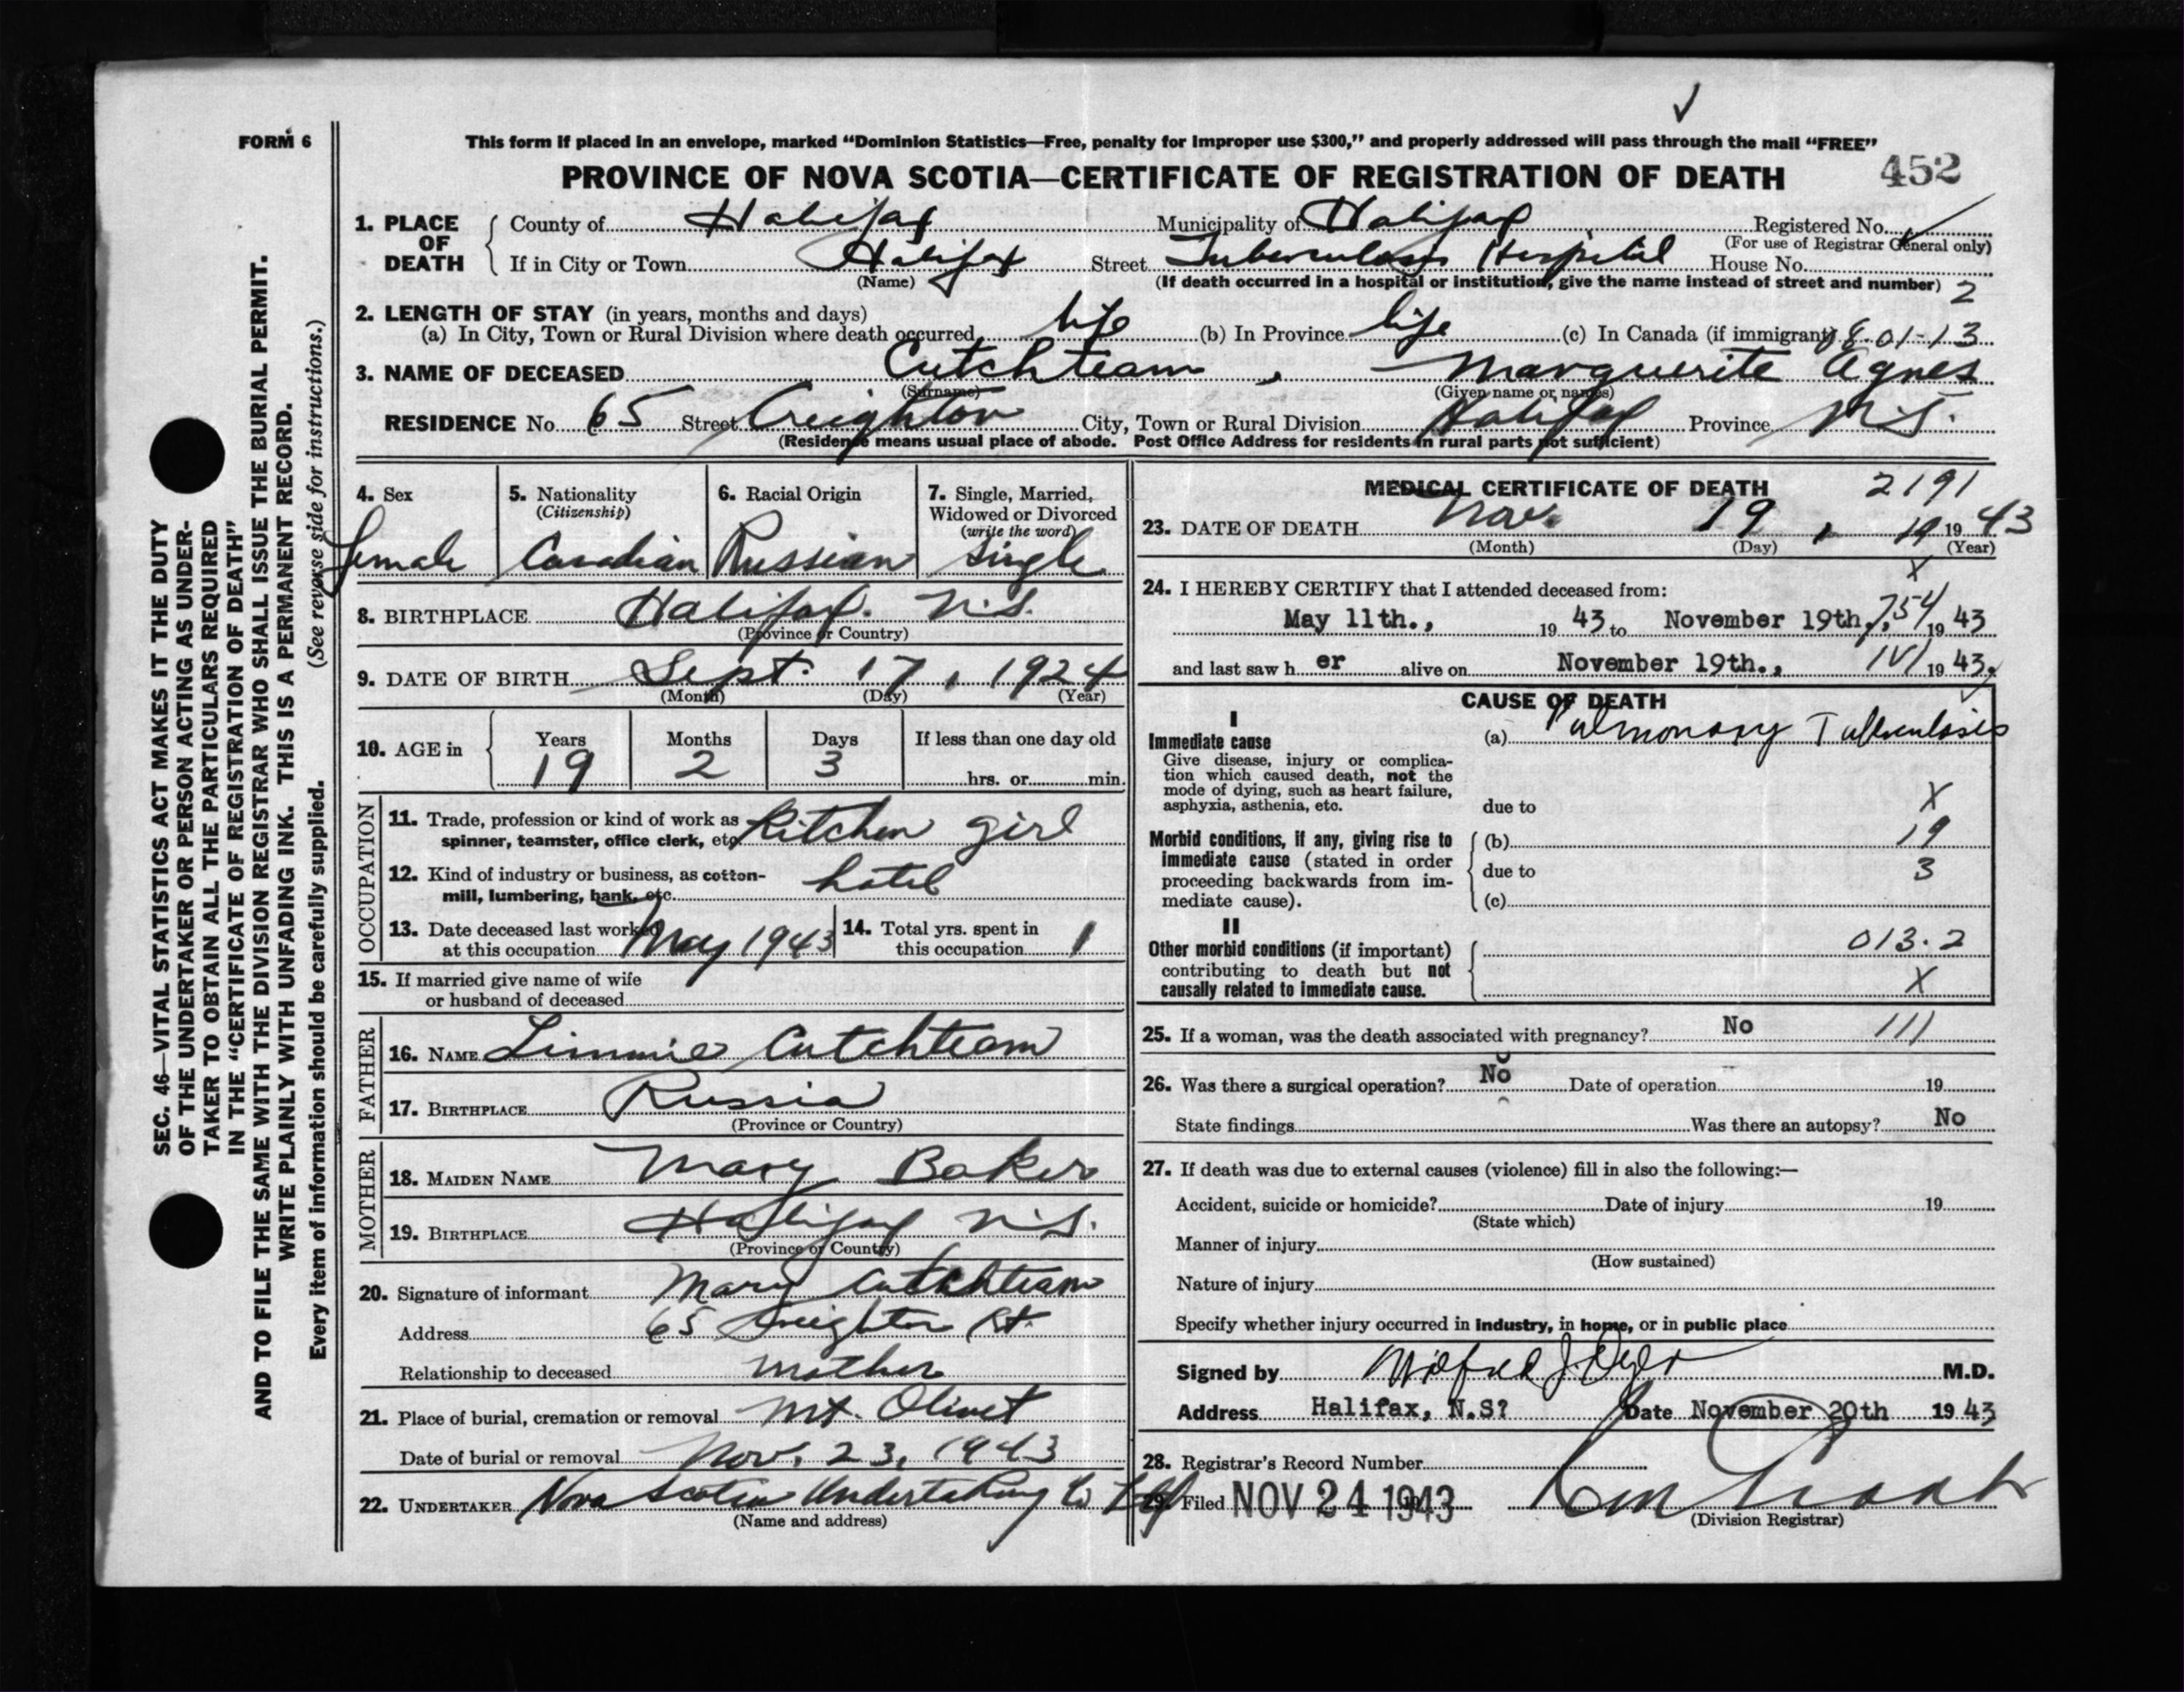 FORM 6
This form if placed in an envelope, marked “Dominion Statistics—Free, penalty for improper use $300,” and properly addressed will pass through the mail “FREE”
PROVINCE OF NOVA SCOTIA—CERTIFICATE OF REGISTRATION OF DEATH 452
1. PLACE OF DEATH County of Halifax Municipality of Halifax Registered No.
(For use of Registrar General only)
If in City or Town Halifax Street Tuberculosis Hospital House No.
(Name) (If death occurred in a hospital or institution, give the name instead of street and number) 2
2. LENGTH OF STAY (in years, months and days)
(a) In City, Town or Rural Division where death occurred life (b) In Province life (c) In Canada (if immigrant) 8.01-13
3. NAME OF DECEASED Cutchteam, Marguerite Agnes
(Surname) (Given name or names)
RESIDENCE No. 65 Street Creighton City, Town or Rural Division Halifax Province N.S.
(Residence means usual place of abode. Post Office Address for residents in rural parts not sufficient)
4. Sex
female
5. Nationality
(Citizenship)
Canadian
6. Racial Origin
Russian
7. Single, Married,
Widowed or Divorced
(write the word)
single
8. BIRTHPLACE Halifax. N.S.
(Province or Country)
9. DATE OF BIRTH Sept. 17, 1924
(Month) (Day) (Year)
10. AGE in Years Months Days If less than one day old
19 2 3 hrs. or min.
OCCUPATION
11. Trade, profession or kind of work as
spinner, teamster, office clerk, etc. Kitchen girl
12. Kind of industry or business, as cotton-
mill, lumbering, bank, etc. hotel
13. Date deceased last worked
at this occupation May 1943
14. Total yrs. spent in
this occupation 1
15. If married give name of wife
or husband of deceased
FATHER
16. NAME Limmie Cutchteam
17. BIRTHPLACE Russia
(Province or Country)
MOTHER
18. MAIDEN NAME Mary Baker
19. BIRTHPLACE Halifax N.S.
(Province or Country)
20. Signature of informant Mary Cutchteam
Address 65 Creighton St.
Relationship to deceased mother
21. Place of burial, cremation or removal Mt. Olivet
Date of burial or removal Nov. 23, 1943
22. UNDERTAKER Nova Scotia Undertaking Co Ltd
(Name and address)
MEDICAL CERTIFICATE OF DEATH 2191
23. DATE OF DEATH Nov. 19, 19 43
(Month) (Day) (Year)
X
24. I HEREBY CERTIFY that I attended deceased from:
May 11th., 19 43 to November 19th., 754 19 43
and last saw h er alive on November 19th., 19 43.
CAUSE OF DEATH
I
Immediate cause
Give disease, injury or complica-
tion which caused death, not the
mode of dying, such as heart failure,
asphyxia, asthenia, etc.
(a) Pulmonary Tuberculosis
due to X
Morbid conditions, if any, giving rise to
immediate cause (stated in order
proceeding backwards from im-
mediate cause).
(b) 19
due to 3
(c)
II
Other morbid conditions (if important)
contributing to death but not
causally related to immediate cause.
013.2
X
25. If a woman, was the death associated with pregnancy? No 111
26. Was there a surgical operation? No Date of operation 19
State findings Was there an autopsy? No
27. If death was due to external causes (violence) fill in also the following:—
Accident, suicide or homicide? Date of injury 19
(State which)
Manner of injury
(How sustained)
Nature of injury
Specify whether injury occurred in industry, in home, or in public place
Signed by Wilfred J. Dyer M.D.
Address Halifax, N.S? Date November 20th 19 43
28. Registrar's Record Number
29. Filed NOV 24 1943
(Division Registrar)
SEC. 46—VITAL STATISTICS ACT MAKES IT THE DUTY
OF THE UNDERTAKER OR PERSON ACTING AS UNDER-
TAKER TO OBTAIN ALL THE PARTICULARS REQUIRED
IN THE “CERTIFICATE OF REGISTRATION OF DEATH”
AND TO FILE THE SAME WITH THE DIVISION REGISTRAR WHO SHALL ISSUE THE BURIAL PERMIT.
WRITE PLAINLY WITH UNFADING INK. THIS IS A PERMANENT RECORD.
Every item of information should be carefully supplied. (See reverse side for instructions.)